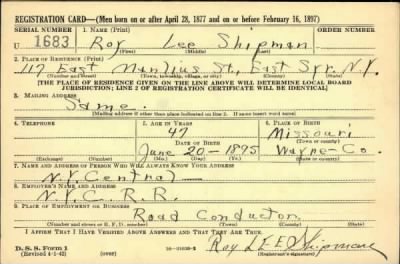 REGISTRATION CARD—(Men born on or after April 28, 1877 and on or before February 16, 1897)
SERIAL NUMBER 1. NAME (Print) ORDER NUMBER
U 1683 Roy Lee Shipman
(First) (Middle) (Last)
2. PLACE OF RESIDENCE (Print)
117 East Manlius St., East Syr. N.Y.
(Number and street) (Town, township, village, or city) (County) (State)
[THE PLACE OF RESIDENCE GIVEN ON THE LINE ABOVE WILL DETERMINE LOCAL BOARD
JURISDICTION; LINE 2 OF REGISTRATION CERTIFICATE WILL BE IDENTICAL]
3. MAILING ADDRESS
Same.
(Mailing address if other than place indicated on line 2. If same insert word same)
4. TELEPHONE 5. AGE IN YEARS 6. PLACE OF BIRTH
47 Missouri
DATE OF BIRTH (Town or county)
June 20-1895 Wayne-Co.
(Exchange) (Number) (Mo.) (Day) (Yr.) (State or country)
7. NAME AND ADDRESS OF PERSON WHO WILL ALWAYS KNOW YOUR ADDRESS
N.Y. Central
8. EMPLOYER'S NAME AND ADDRESS
N.Y.C. R.R.
9. PLACE OF EMPLOYMENT OR BUSINESS
Road Conductor
(Number and street or R. F. D. number) (Town) (County) (State)
I AFFIRM THAT I HAVE VERIFIED ABOVE ANSWERS AND THAT THEY ARE TRUE.
Roy LEE Shipman
D. S. S. Form 1
(Revised 4-1-42) (over) (Registrant's signature)